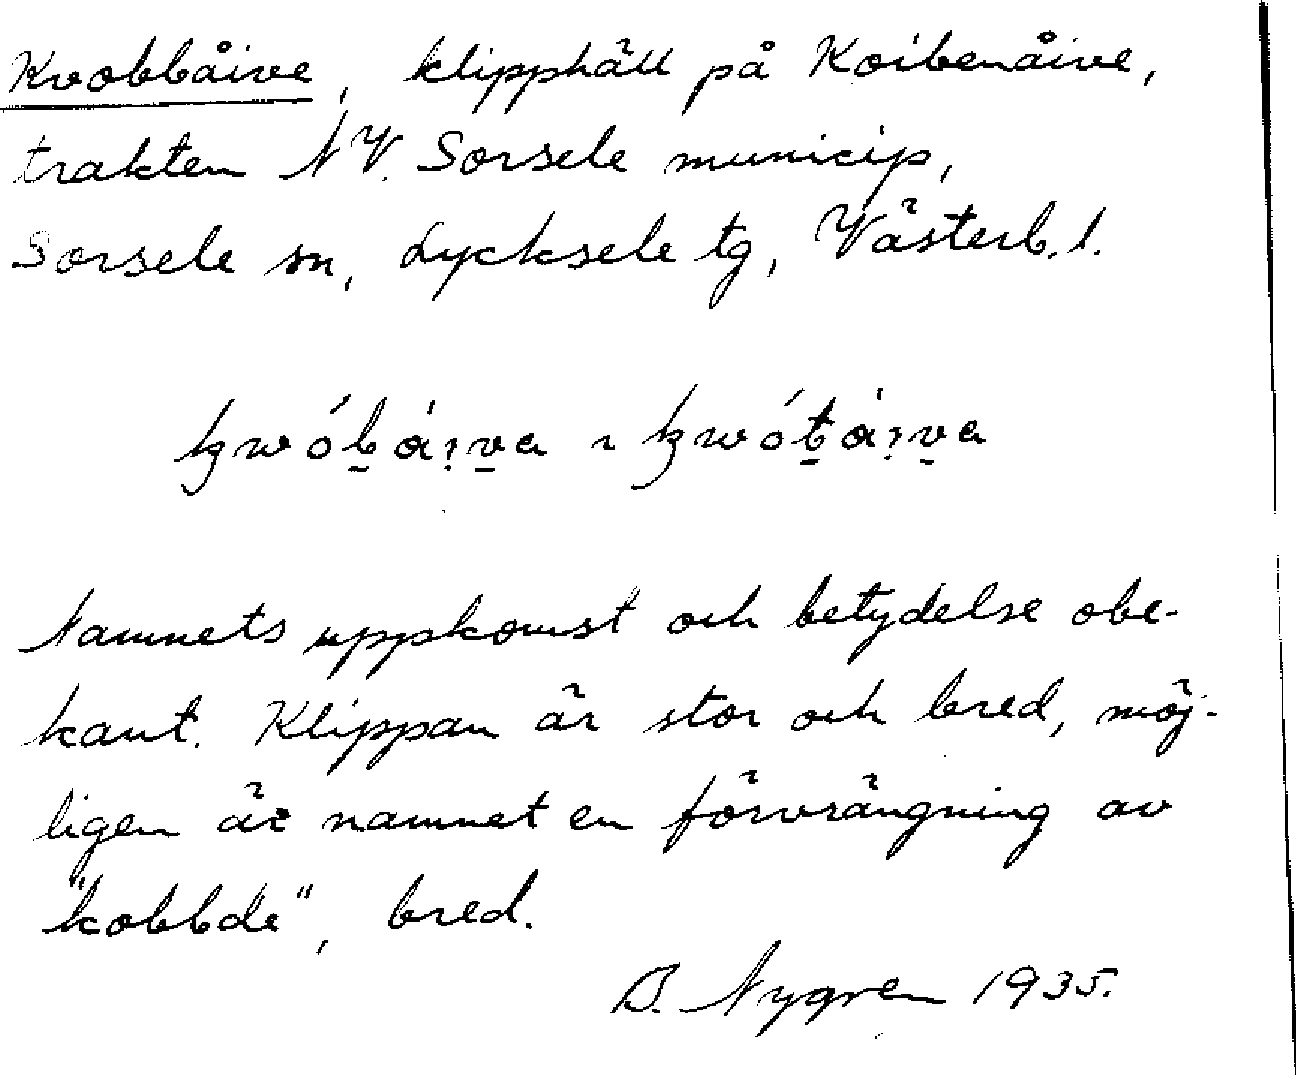 Kvobbåive, klipphäll på Koibenåive,
trakten NV. Sorsele municip,
Sorsele sn, Lycksele tg, Västerb. l.
Namnets uppkomst och betydelse obe-
kant. Klippan är stor och bred, möj-
ligen är namnet en förvrängning av
"kobbde", bred.
B. Nygren 1935.